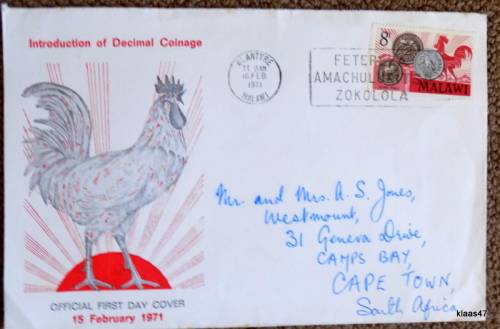 Introduction of Decimal Coinage
BLANTYRE
11 AM
16 FEB
1971
MALAWI
AMACHUL
ZOKOLOLA
8
MALAWI
Mr. and Mrs. A. S. Jones,
Westmount,
31 Geneva Drive,
CAMPS BAY,
CAPE TOWN,
South Africa
OFFICIAL FIRST DAY COVER
15 February 1971
klaas47